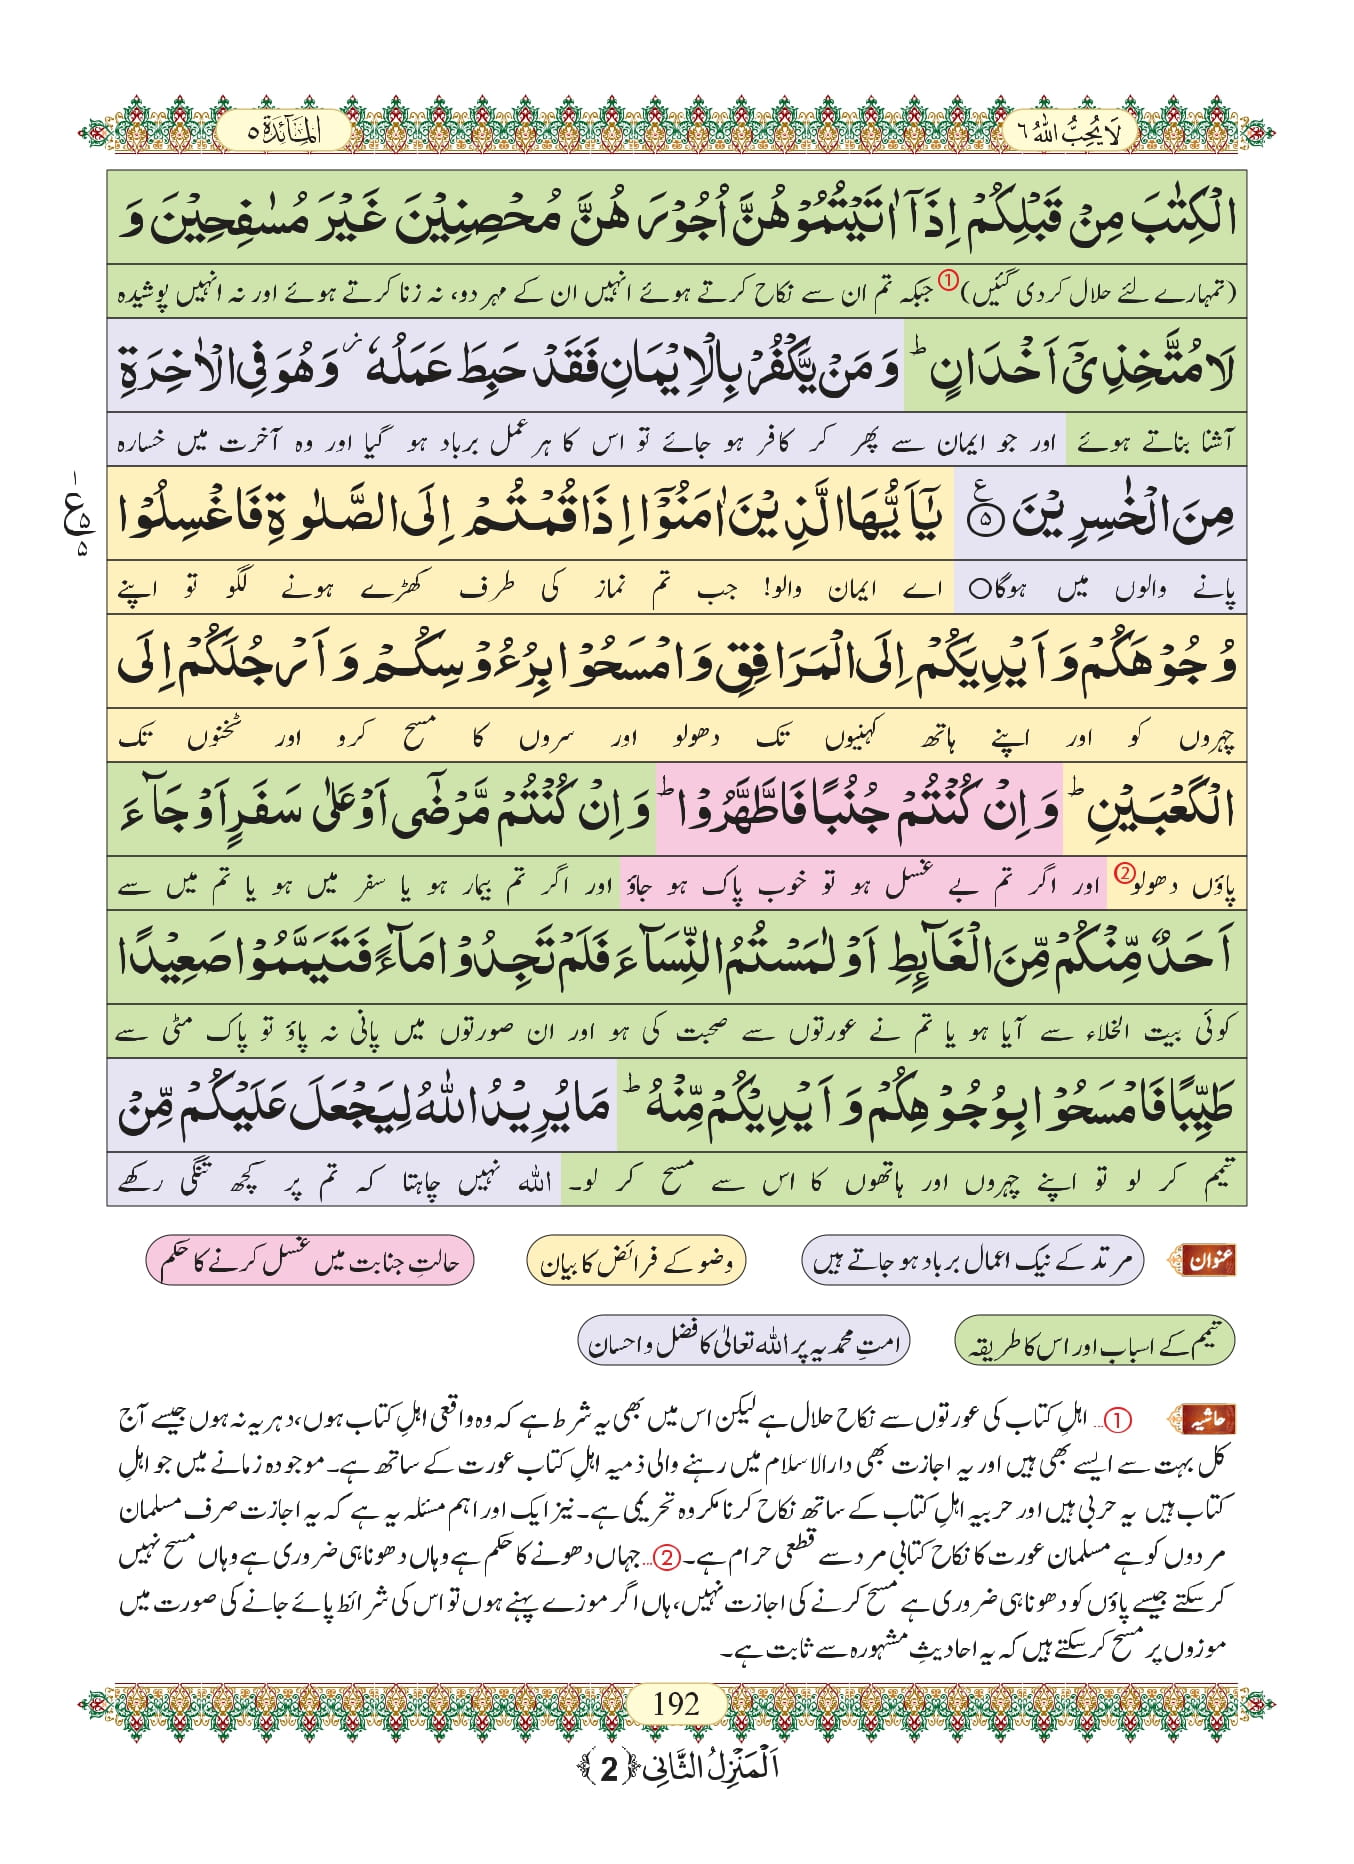 لَا یُحِبُّ اللّٰهُ ٦
اَلْمَآئِدَة ٥
الْكِتٰبَ مِنْ قَبْلِكُمْ اِذَاۤ اٰتَیْتُمُوْهُنَّ اُجُوْرَهُنَّ مُحْصِنِیْنَ غَیْرَ مُسٰفِحِیْنَ وَ
(تمہارے لئے حلال کردی گئیں)① جبکہ تم ان سے نکاح کرتے ہوئے انہیں ان کے مہر دو، نہ زنا کرتے ہوئے اور نہ انہیں پوشیدہ
لَا مُتَّخِذِیْۤ اَخْدَانٍؕ وَ مَنْ یَّكْفُرْ بِالْاِیْمَانِ فَقَدْ حَبِطَ عَمَلُهٗ٘ وَ هُوَ فِی الْاٰخِرَةِ
آشنا بناتے ہوئے اور جو ایمان سے پھر کر کافر ہو جائے تو اس کا ہر عمل برباد ہو گیا اور وہ آخرت میں خسارہ
مِنَ الْخٰسِرِیْنَ ۵ یٰۤاَیُّهَا الَّذِیْنَ اٰمَنُوْۤا اِذَا قُمْتُمْ اِلَى الصَّلٰوةِ فَاغْسِلُوْا
١ ع ۵ ۵
پانے والوں میں ہوگا○ اے ایمان والو! جب تم نماز کی طرف کھڑے ہونے لگو تو اپنے
وُجُوْهَكُمْ وَ اَیْدِیَكُمْ اِلَى الْمَرَافِقِ وَ امْسَحُوْا بِرُءُوْسِكُمْ وَ اَرْجُلَكُمْ اِلَى
چہروں کو اور اپنے ہاتھ کہنیوں تک دھولو اور سروں کا مسح کرو اور ٹخنوں تک
الْكَعْبَیْنِؕ وَ اِنْ كُنْتُمْ جُنُبًا فَاطَّهَّرُوْاؕ وَ اِنْ كُنْتُمْ مَّرْضٰۤى اَوْ عَلٰى سَفَرٍ اَوْ جَآءَ
پاؤں دھولو② اور اگر تم بے غسل ہو تو خوب پاک ہو جاؤ اور اگر تم بیمار ہو یا سفر میں ہو یا تم میں سے
اَحَدٌ مِّنْكُمْ مِّنَ الْغَآىٕطِ اَوْ لٰمَسْتُمُ النِّسَآءَ فَلَمْ تَجِدُوْا مَآءً فَتَیَمَّمُوْا صَعِیْدًا
کوئی بیت الخلاء سے آیا ہو یا تم نے عورتوں سے صحبت کی ہو اور ان صورتوں میں پانی نہ پاؤ تو پاک مٹی سے
طَیِّبًا فَامْسَحُوْا بِوُجُوْهِكُمْ وَ اَیْدِیْكُمْ مِّنْهُؕ مَا یُرِیْدُ اللّٰهُ لِیَجْعَلَ عَلَیْكُمْ مِّنْ
تیمم کر لو تو اپنے چہروں اور ہاتھوں کا اس سے مسح کر لو۔ اللہ نہیں چاہتا کہ تم پر کچھ تنگی رکھے
عنوان مرتد کے نیک اعمال برباد ہو جاتے ہیں وضو کے فرائض کا بیان حالتِ جنابت میں غسل کرنے کا حکم
تیمم کے اسباب اور اس کا طریقہ امتِ محمدیہ پر اللہ تعالیٰ کا فضل و احسان
حاشیہ ①... اہلِ کتاب کی عورتوں سے نکاح حلال ہے لیکن اس میں بھی یہ شرط ہے کہ وہ واقعی اہلِ کتاب ہوں، دہریہ نہ ہوں جیسے آج
کل بہت سے ایسے بھی ہیں اور یہ اجازت بھی دارالاسلام میں رہنے والی ذمیہ اہلِ کتاب عورت کے ساتھ ہے۔ موجودہ زمانے میں جو اہلِ
کتاب ہیں یہ حربی ہیں اور حربیہ اہلِ کتاب کے ساتھ نکاح کرنا مکروہ تحریمی ہے۔ نیز ایک اور اہم مسئلہ یہ ہے کہ یہ اجازت صرف مسلمان
مردوں کو ہے مسلمان عورت کا نکاح کتابی مرد سے قطعی حرام ہے۔ ②... جہاں دھونے کا حکم ہے وہاں دھونا ہی ضروری ہے وہاں مسح نہیں
کر سکتے جیسے پاؤں کو دھونا ہی ضروری ہے مسح کرنے کی اجازت نہیں، ہاں اگر موزے پہنے ہوں تو اس کی شرائط پائے جانے کی صورت میں
موزوں پر مسح کر سکتے ہیں کہ یہ احادیثِ مشہورہ سے ثابت ہے۔
192
اَلْمَنْزِلُ الثَّانِی ﴿2﴾